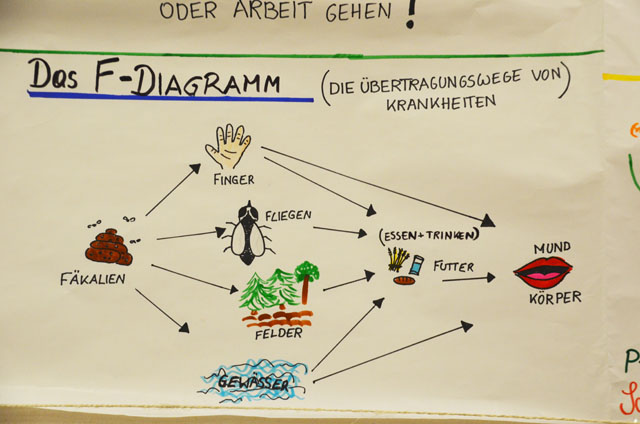 ODER ARBEIT GEHEN!
DAS F-DIAGRAMM
(DIE ÜBERTRAGUNGSWEGE VON
KRANKHEITEN)
FINGER
FLIEGEN
(ESSEN+TRINKEN)
FÄKALIEN
FUTTER
MUND
KÖRPER
FELDER
GEWÄSSER